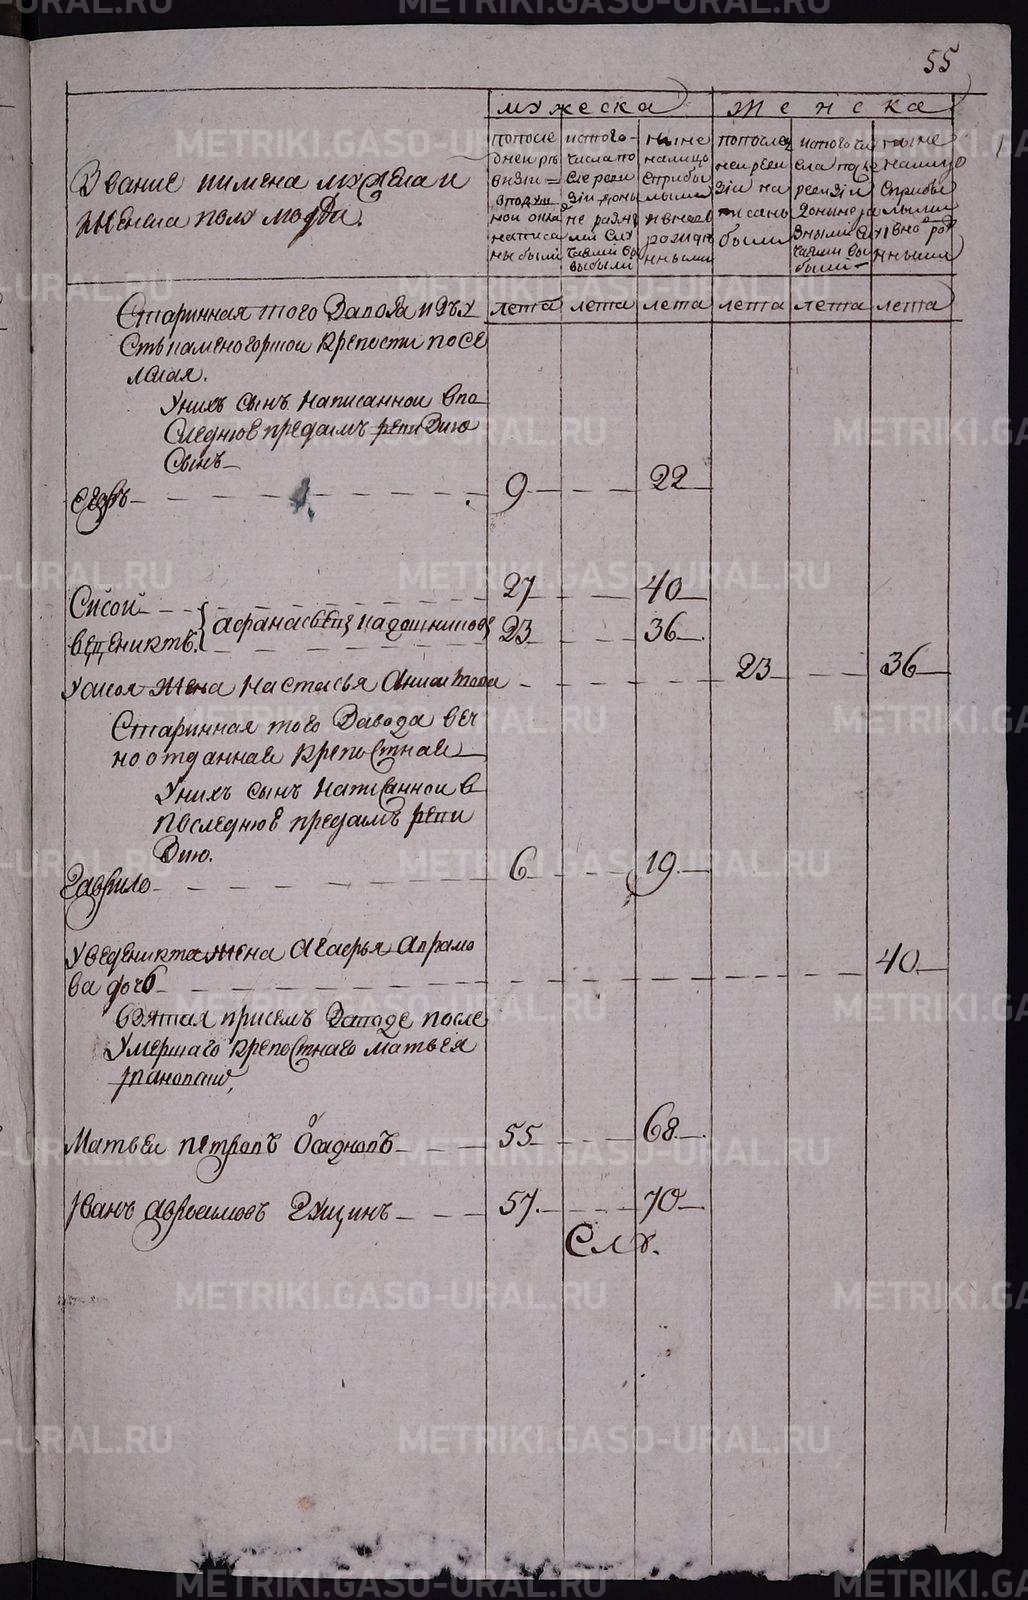 55
мужеска
женска
Звание иимена мужеска и
женска полу людѣи.
попосле
дней ре
визии
вподуш
ной окла
написа
ны были
истого
числа по
сле реви
зии доны
не разны
ми слу
чаями вы
выбыли
ныне
налицо
сприбы
лыми
ивновь
рожде
нными
попослед
ней реви
зии на
писаны
были
истого чи
сла после
ревизии
доныне ра
зными слу
чаями вы
были
ныне
налицо
сприбы
лыми
ивно рож
нными
лета лета лета лета лета лета
Старинная того Завода ивъ У
сть каменогорской крепости посе
леная.
Унихъ сынъ написанной впо
следнюю предъ симъ ревизию
сынъ
Егоръ 9 22
Сисой 27 40
Веденихтъ Афанасьевы Кадошниковы 23 36
Усисоя жена Настасья 23 36
Старинная того Завода веч
но отданная крепостная
Унихъ сынъ написанной в
последнюю предъ симъ реви
зию.
Гаврило 6 19
Уведенихта жена Агафья Абрамо
ва дочь 40
взятая присемъ Заводе после
умершаго крепостнаго Матвея
Матвеи Петровъ Осадчовъ 55 68
Иванъ Абросимовъ Гущинъ 57 70
METRIKI.GASO-URAL.RU